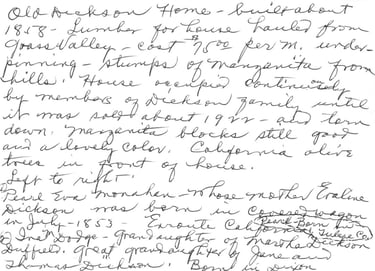 Old Dickson Home - built about
1858 - Lumber for house hauled from
Grass Valley - cost $75.00 per m. under-
pinning - stumps of manzanita from
hills. House occupied continuously
by members of Dickson family until
it was sold about 1922 - and torn
down. Manzanita blocks still good
and a lovely color. California olive
trees in front of house.
Left to right:
1) Pearl Eva Monahan - whose mother Evaline
Dickson was born in Covered wagon
in July - 1853 Enroute California
Pearl Born in
2) Ina Dodge - granddaughter of Martha Dickson
Duffield. Great granddaughter of Jane and
Thomas Dickson. Born in Dixon